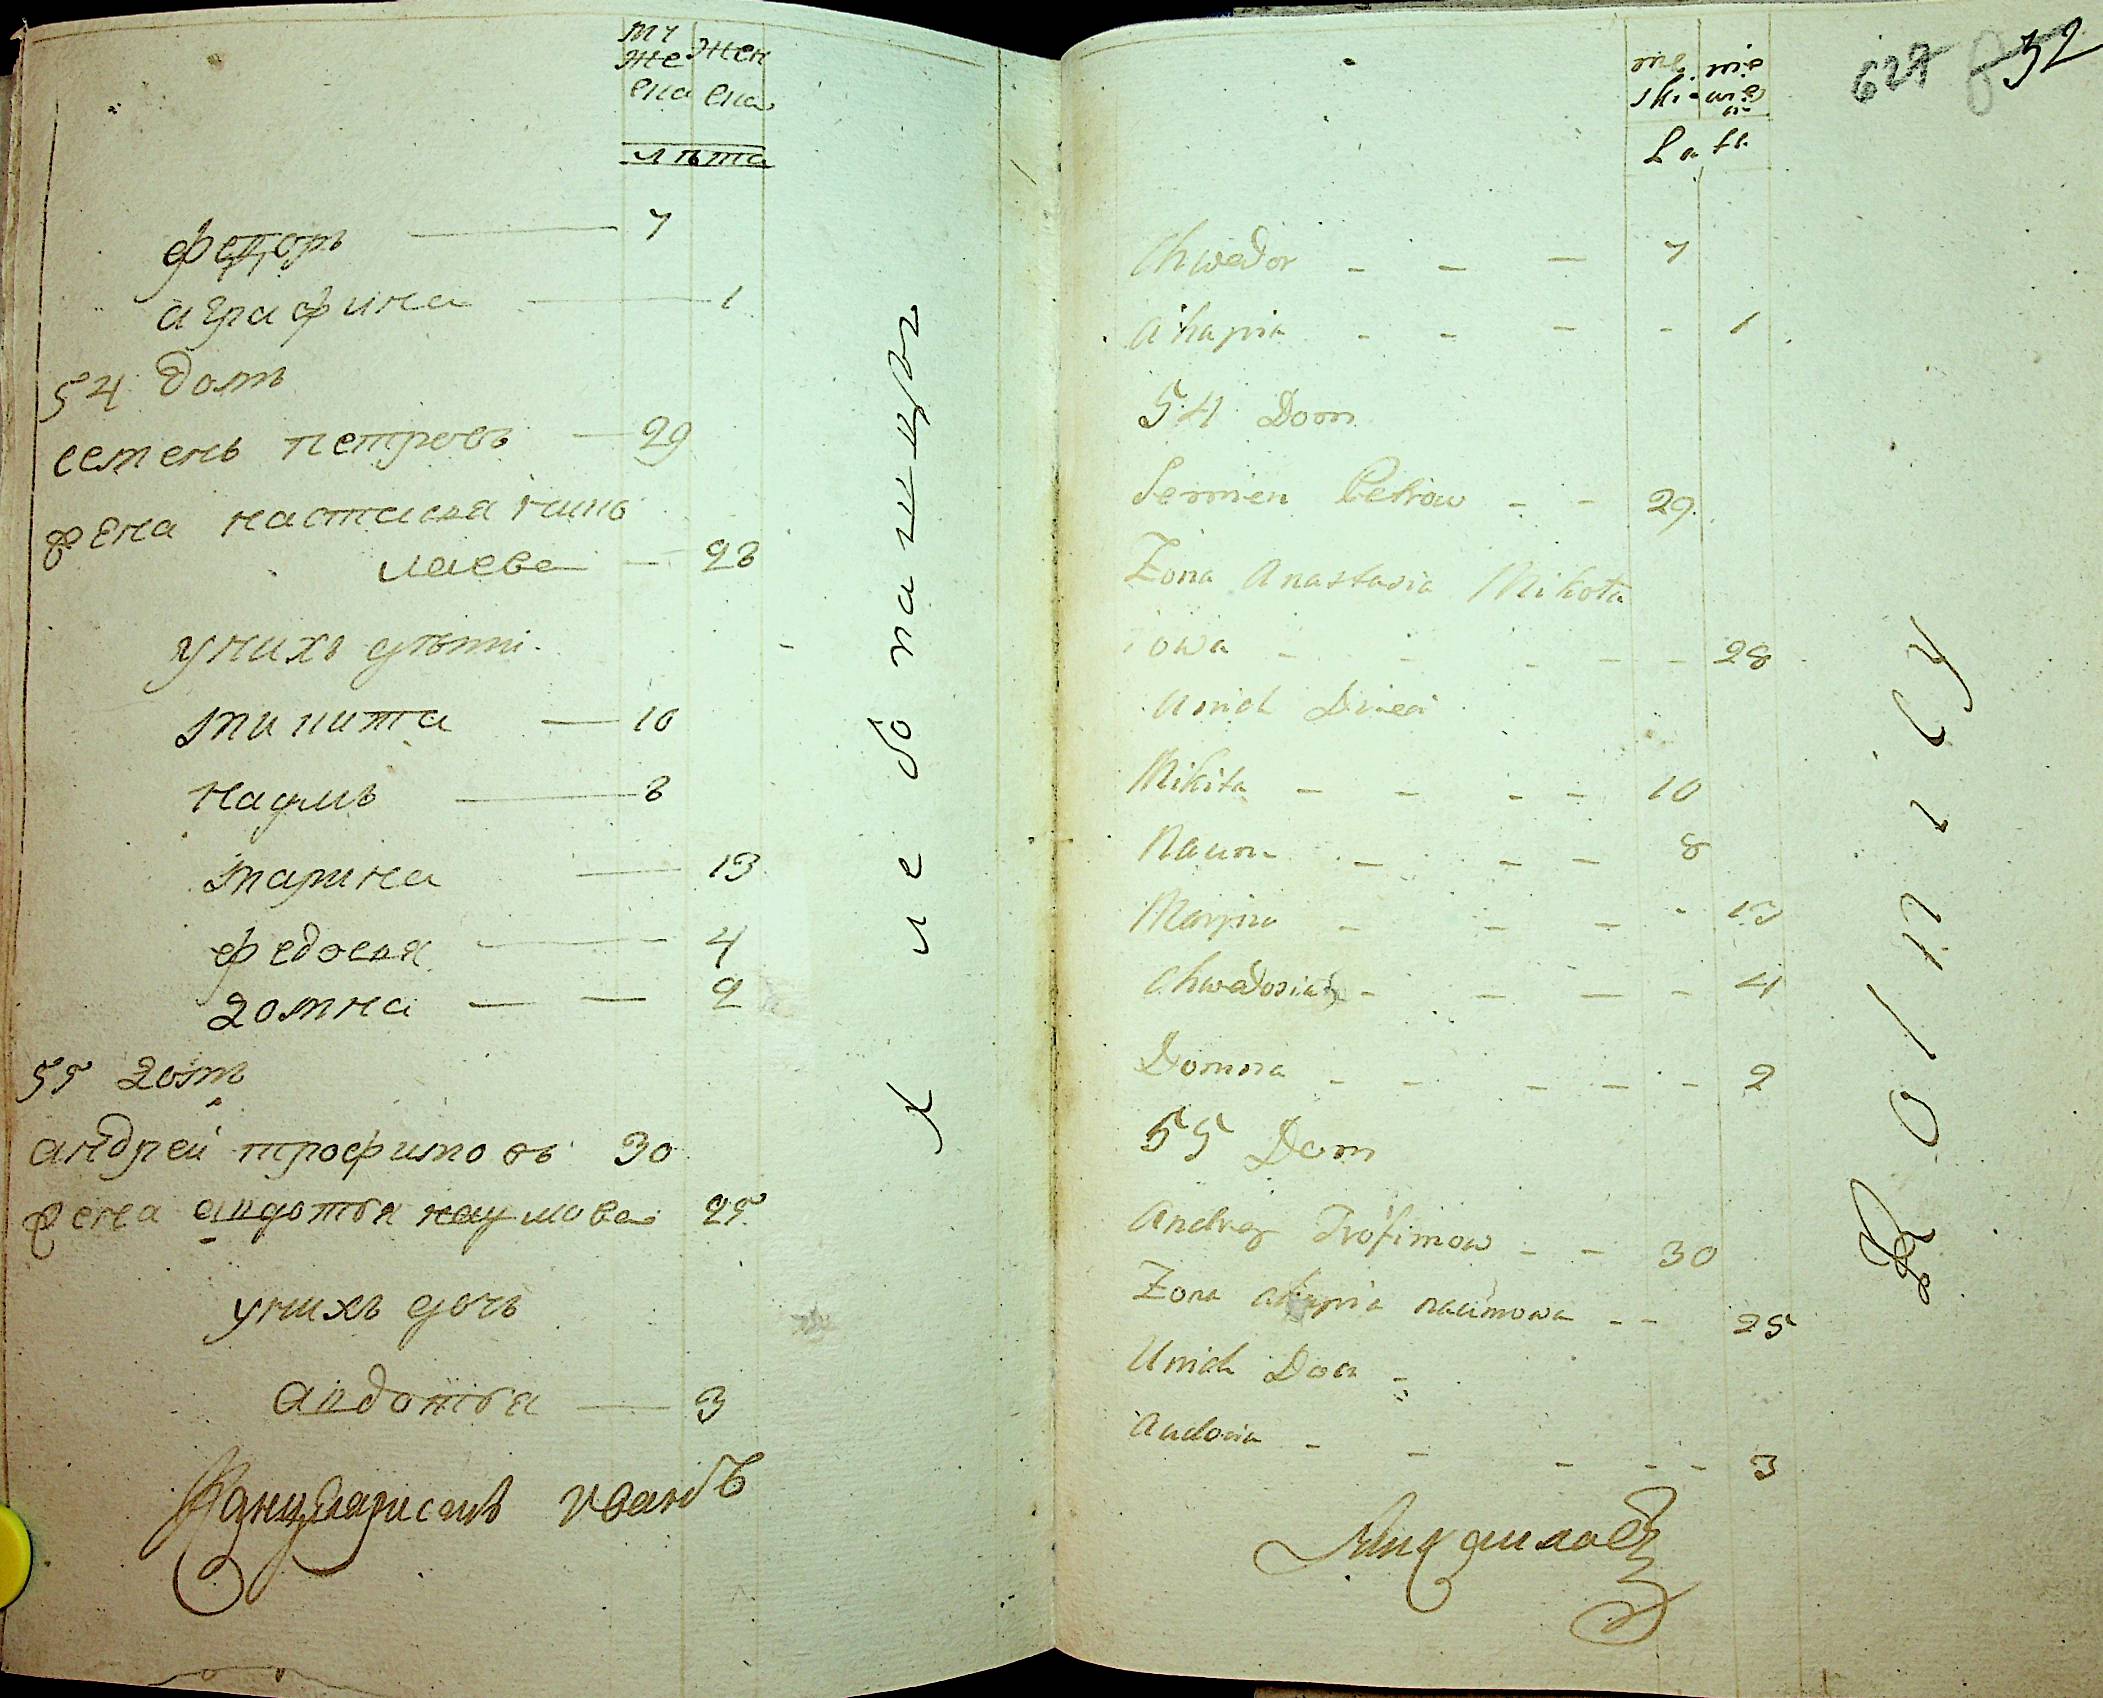 му
же
ска
жен
ска
лѣта
федоръ 7
аграфина 1
54 домъ
семенъ петровъ 29
жена настасья нико
лаева 28
унихъ дѣти
микита 10
наумъ 8
марина 13
федосья 4
домна 2
55 домъ
андрей трофимовъ 30
жена авдотья наумова 25
унихъ дочь
авдотья 3
Иванъ
хлебопашцы
627 52
Lata
Chwedor 7
Ahapia 1
54 Dom
Semien Petrow 29
Zona Anastasia Mikoła
iowa 28
Unich Dzieci
Mikita 10
Naum 8
Maryna 13
Chwedosia 4
Domna 2
55 Dom
Andrey Trofimow 30
Zona Ahapia naumowa 25
Unich Docz
Audocia 3
Rolnicy